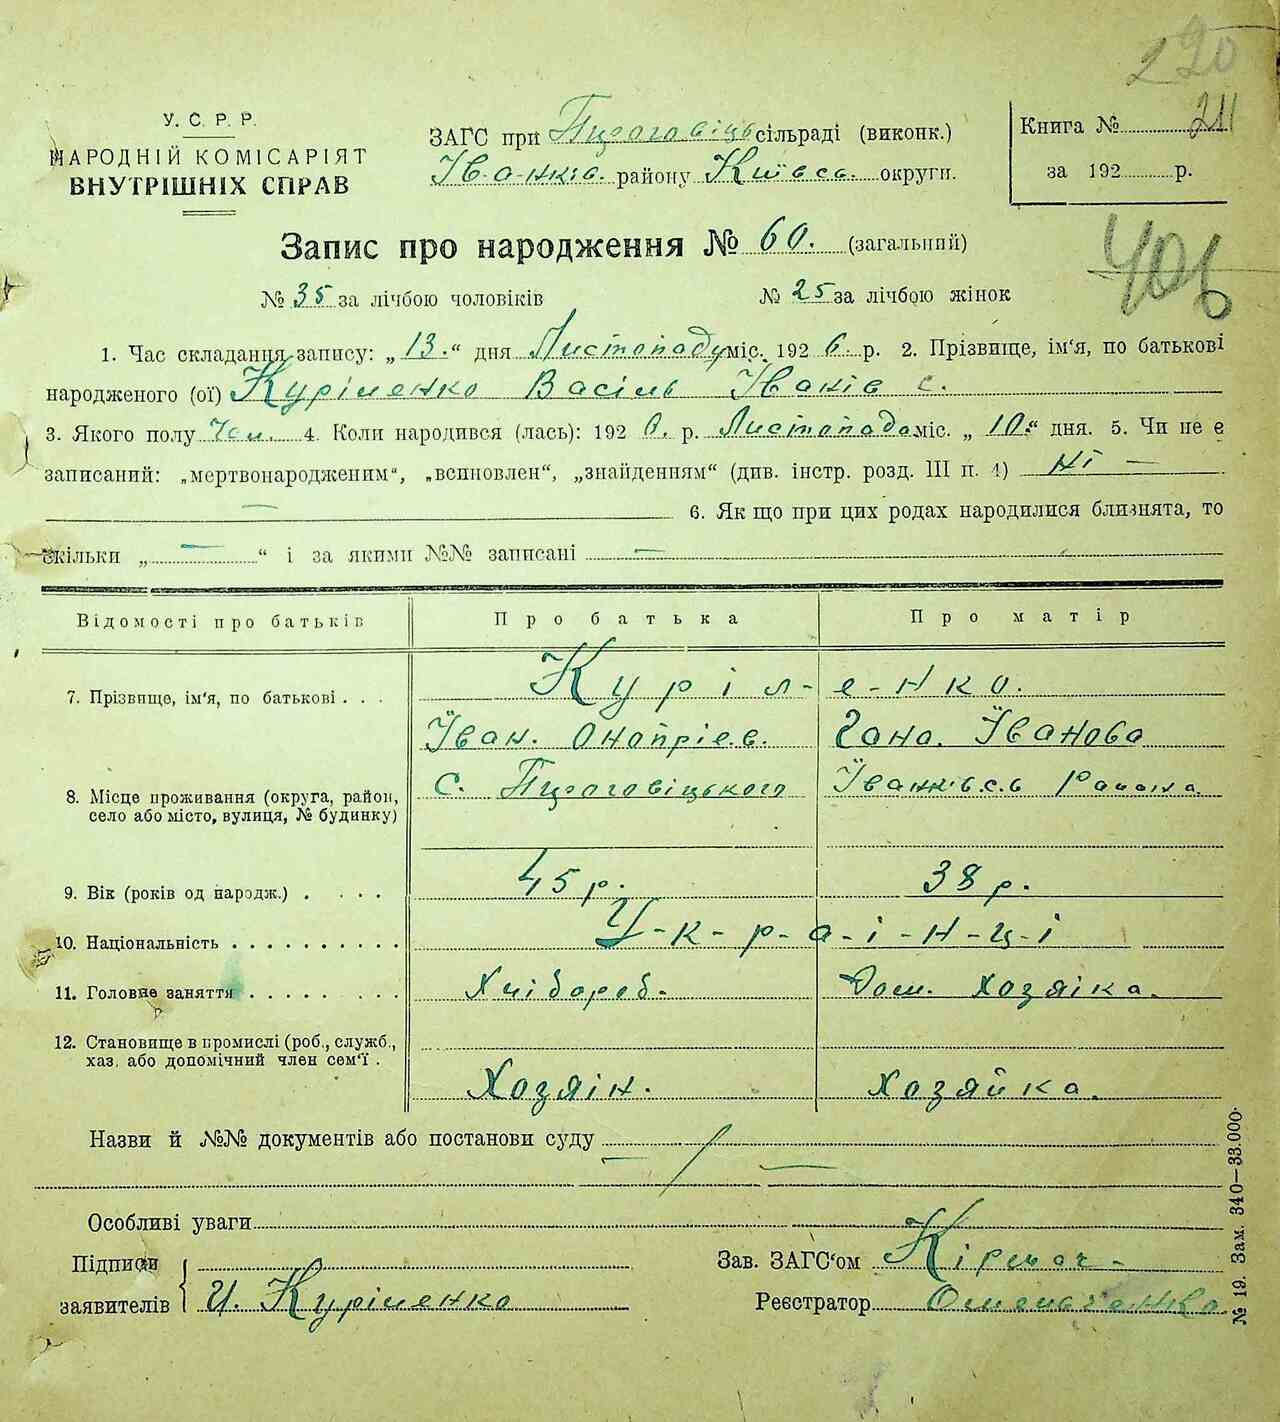 220
У. С. Р. Р.
НАРОДНІЙ КОМІСАРІЯТ
ВНУТРІШНІХ СПРАВ
ЗАГС при сільраді (виконк.)
Іванків. району Київсь. округи.
Книга № 211
за 192 р.
Запис про народження № 60. (загальний)
406
№ 35 за лічбою чоловіків № 25 за лічбою жінок
1. Час складання запису: „13.“ дня Листопаду міс. 192 6. р. 2. Прізвище, ім'я, по батькові
народженого (ої) Куріленко Васіль Іванів с.
3. Якого полу Чол. 4. Коли народився (лась): 192 6. р. Листопада міс. „10.“ дня. 5. Чи не є
записаний: „мертвонародженим“, „всиновлен“, „знайденням“ (див. інстр. розд. III п. 4) Ні —
— 6. Як що при цих родах народилися близнята, то
скільки „ — “ і за якими №№ записані —
Відомості про батьків Про батька Про матір
7. Прізвище, ім'я, по батькові . . . Куріл-е-нко.
Їван. Онопріев. Гана. Їванова
8. Місце проживання (округа, район,
село або місто, вулиця, № будинку)
с. Їванківсь Района.
9. Вік (років од народж.) . . . . 45 р. 38 р.
10. Національність . . . . . . . . . . У-к-р-а-ї-н-ц-і
11. Головне заняття . . . . . . . . . Хлібороб. Дом. хозяіка.
12. Становище в промислі (роб., служб.,
хаз. або допомічний член сем'ї .
Хозяін. Хозяйка.
Назви й №№ документів або постанови суду
Особливі уваги
Підписи
заявителів И. Куріленко
Зав. ЗАГС'ом
Реєстратор Омельченко
№ 19. Зам. 340—33.000.